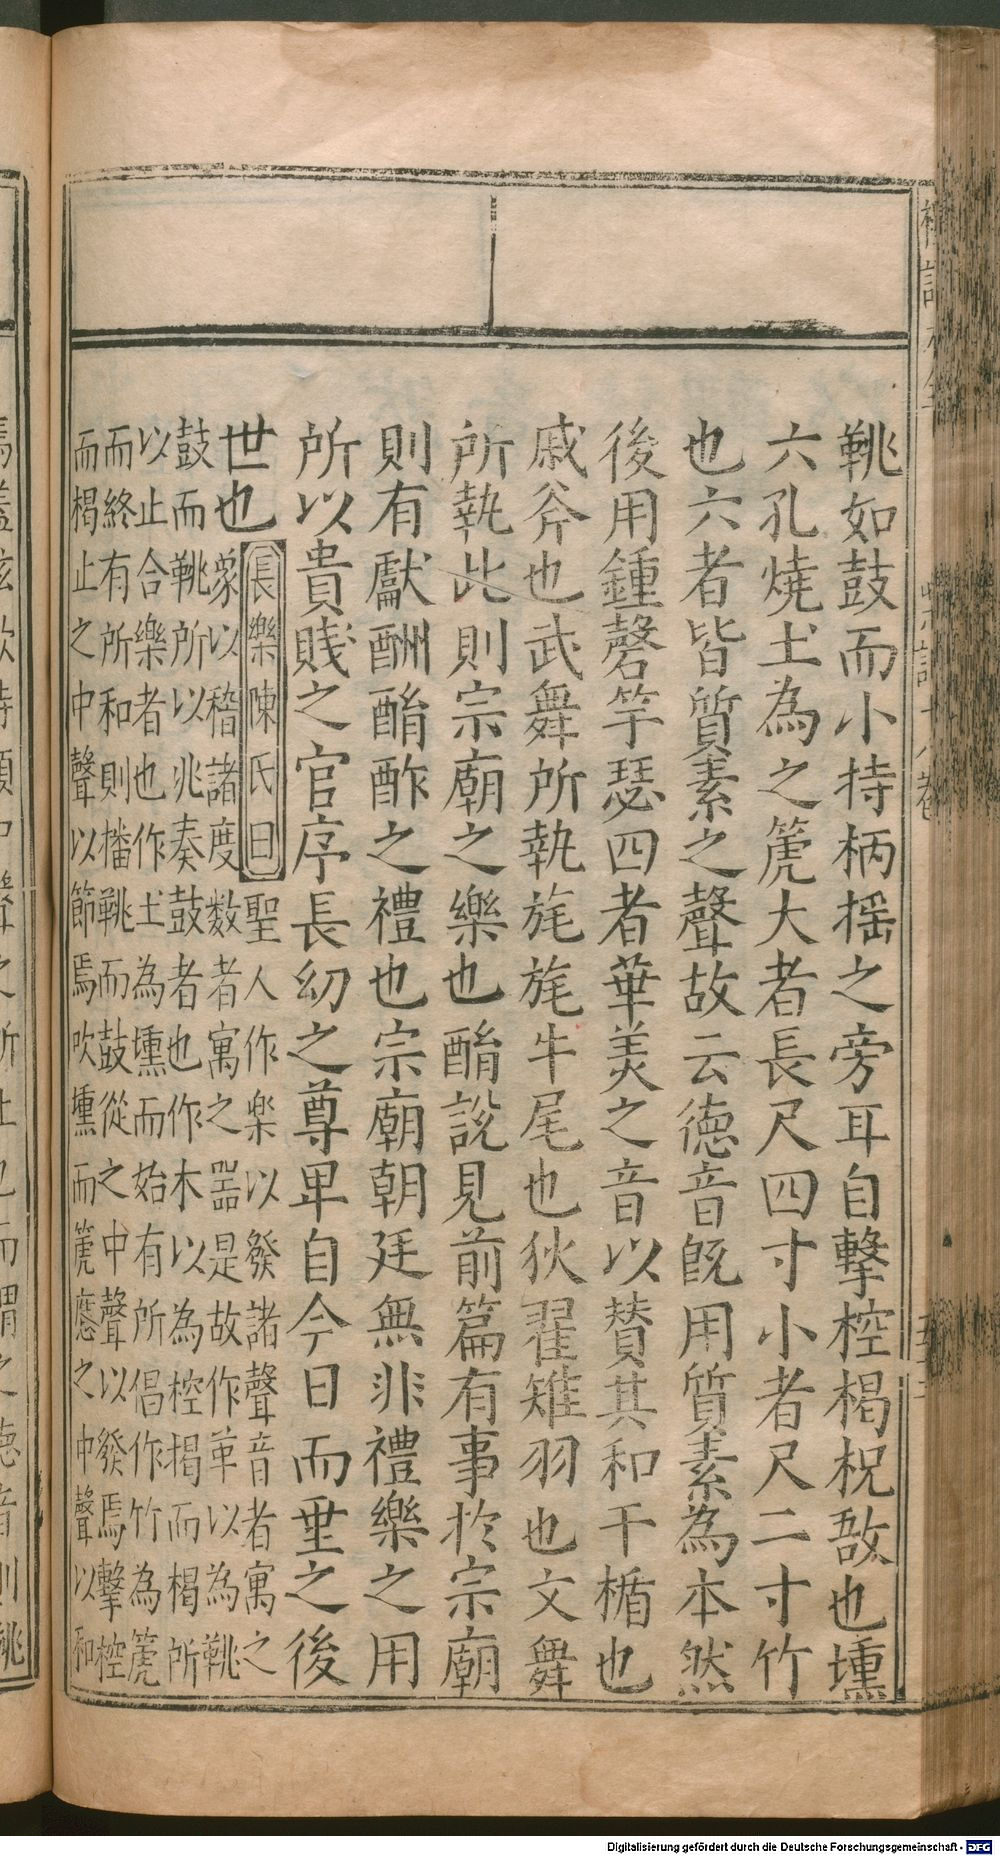 鞉如鼓而小持柄揺之旁耳自擊椌楬柷敔也壎
六孔燒土為之箎大者長尺四寸小者尺二寸竹
也六者皆質素之聲故云德音既用質素為本然
後用鍾磬竽瑟四者華美之音以賛其和干楯也
戚斧也武舞所執旄旄牛尾也狄翟雉羽也文舞
所執此則宗廟之樂也酳說見前篇有事於宗廟
則有獻酬酳酢之禮也宗廟朝廷無非禮樂之用
所以貴賤之官序長幼之尊卑自今日而垂之後
世也
長樂陳氏曰聖人作楽以發諸聲音者寓之
象以稽諸度数者寓之噐是故作革以為鞉
鼓而鞉所以兆奏鼓者也作木以為椌揭而楬所
以止合樂者也作土為壎而始有所倡作竹為箎
而終有所和則播鞉而鼓從之中聲以發焉擊椌
而楬止之中聲以節焉吹壎而箎應之中聲以和
Digitalisierung gefördert durch die Deutsche Forschungsgemeinschaft - DFG